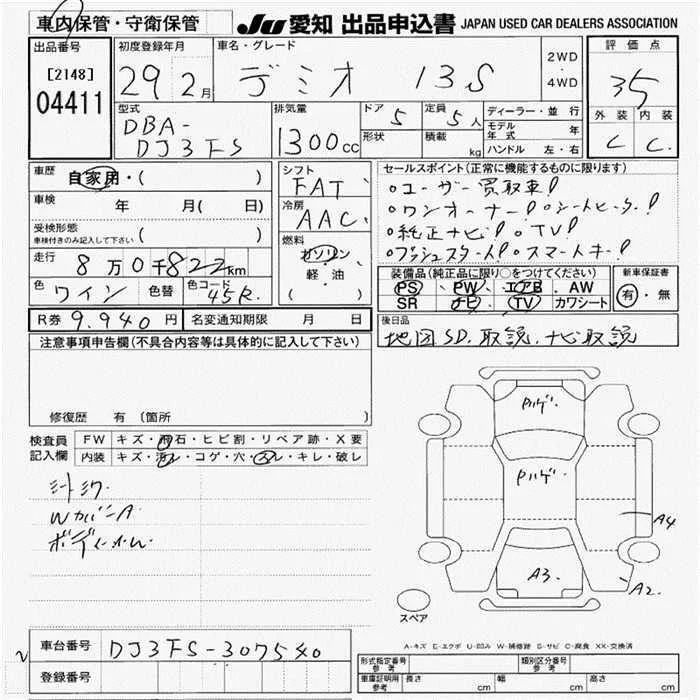 車内保管・守衛保管
JU 愛知 出品申込書 JAPAN USED CAR DEALERS ASSOCIATION
出品番号
[2148]
04411
初度登録年月
29 2月
車名・グレード
デミオ 13S
2WD
・
4WD
評価点
3.5
外装 内装
C C
型式
DBA-
DJ3FS
排気量
1300cc
ドア
5
形状
定員
5人
積載
kg
ディーラー・並行
モデル年式 年
ハンドル 左・右
車歴
自家用・( )
車検 年 月( 日)
受検形態
車検付きのみ記入して下さい ( )
走行
8万0千822km
色 ワイン 色替 色コード 45R
シフト
FAT
冷房
AAC
燃料
ガソリン
軽・油
( )
セールスポイント(正常に機能するものに限ります)
○ユーザー買取車!
○ワンオーナー!○シートヒーター!
○純正ナビ!○TV!
○プッシュスタート!○スマートキー!
装備品(純正品に限り○をつけてください)
PS PW エアB AW
SR ナビ TV カワシート
新車保証書
有・無
R券 9.940円 名変通知期限 月 日
後日品
地図SD.取説.ナビ取説
注意事項申告欄(不具合内容等は具体的に記入して下さい)
修復歴 有(箇所
検査員
記入欄
FW キズ・飛石・ヒビ割・リペア跡・X要
内装 キズ・汚レ・コゲ・穴・スレ・キレ・破レ
シートシワ
WカバーA
P.ハゲ.
P.ハゲ.
A3.
A4
A2.
スペア
A-キズ E-エクボ U-凹み W-補修跡 S-サビ C-腐食 XX-交換済
車台番号 DJ3FS-307540
登録番号
形式指定番号
参考
類別区分番号
参考
車庫証明用
参考
長さ cm 幅 cm 高さ cm